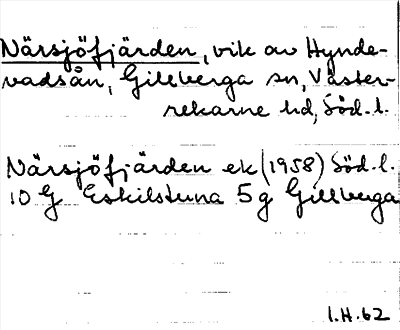 Närsjöfjärden, vik av Hynde-
vadsån, Gillberga sn, Väster-
rekarne hd, Söd. l.
Närsjöfjärden ek (1958) Söd. l.
10 G Eskilstuna 5 g Gillberga
I.H.62